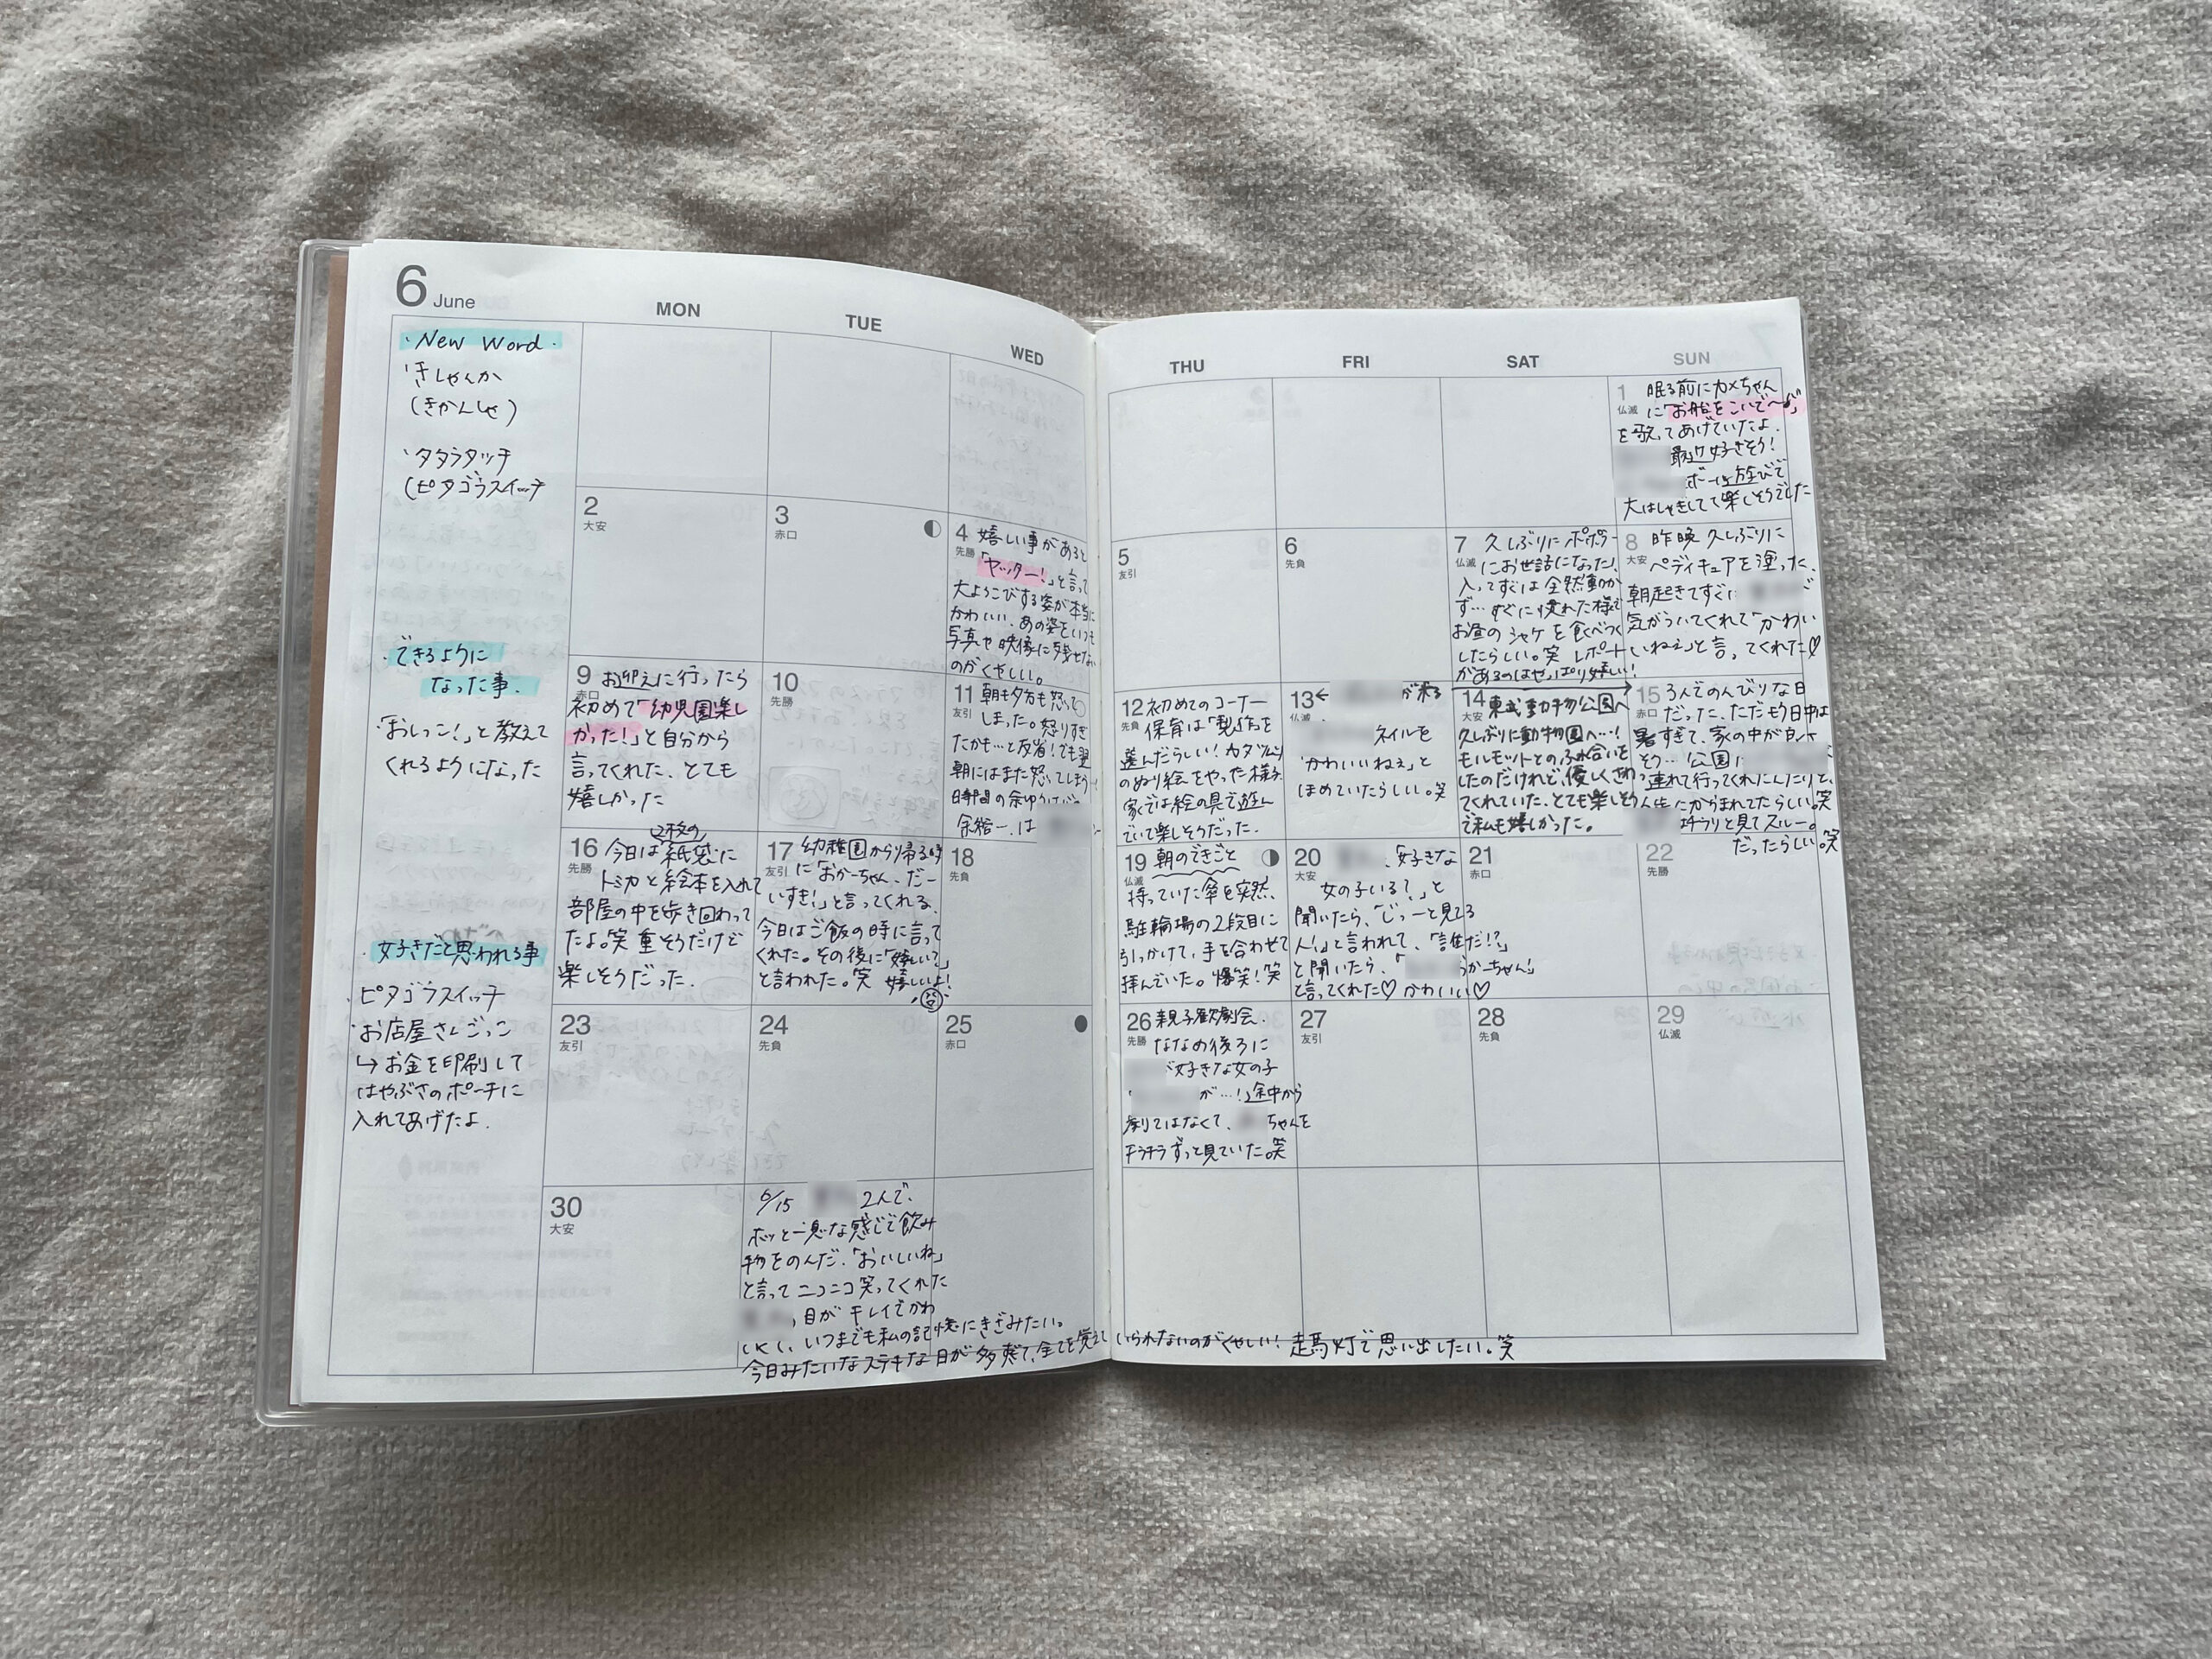 6 June
MON
TUE
WED
THU
FRI
SAT
SUN
・New Word.
・きしゃんか
(きかんしゃ)
・タタラタッチ
(ピタゴラスイッチ
・できるように
なった事.
・「おしっこ!」と教えて
くれるようになった
・好きだと思われる事
・ピタゴラスイッチ
・お店屋さんごっこ
↳お金を印刷して
はやぶさのポーチに
入れてあげたよ.
1
仏滅
眠る前にカメちゃん
に「お船をこいで〜♪」
を歌ってあげていたよ.
最近好きそう!
遊びで
大はしゃぎしてて楽しそうでした
2
大安
3
赤口
4
先勝
嬉しい事があると
「ヤッター!」と言って
大よろこびする姿が本当に
かわいい.あの姿をいつも
写真や映像に残せない
のがくやしい。
5
友引
6
先負
7
仏滅
久しぶりにポポラー
にお世話になった!
入ってすぐは全然動か
ず…すぐに慣れた様で
お昼のシャケを食べつく
したらしい。笑 レポート
があるのはやっぱり嬉しい!
8
大安
昨晩 久しぶりに
ペディキュアを塗った.
朝起きてすぐに
気がついてくれて「かわい
いねぇ」と言ってくれた♡
9
赤口
お迎えに行ったら
初めて「幼児園楽し
かった!」と自分から
言ってくれた.とても
嬉しかった
10
先勝
11
友引
朝も夕方も怒って
しまった。怒りすぎ
たかも…と反省!でも翌
朝にはまた怒ってしまう
時間の余ゆう
余裕 は
12
先負
初めてのコーナー
保育は「製作」を
選んだらしい!カタツムリ
のぬり絵をやった様子.
家では絵の具で遊ん
でいて楽しそうだった.
13←
仏滅
が来る
ネイルを
「かわいいねぇ」と
ほめていたらしい。笑
14
大安
東武動物公園へ
久しぶりに動物園へ…!
モルモットとのふれ合いを
したのだけれど、優しくさわっ
てくれていた.とても楽しそう
で私も嬉しかった。
15
赤口
3人でのんびりな日
だった.ただもう日中は
暑すぎて、家の中が
そう… 公園に
連れて行ってくれたんだけど、
にからまれてたらしい。笑
チラリと見てスルー。
だったらしい。笑
16
先勝
2枚の
今日は紙袋に
トミカと絵本を入れて
部屋の中を歩き回って
たよ。笑 重そうだけど
楽しそうだった.
17
友引
幼稚園から帰る時
に「おかーちゃん、だー
いすき!」と言ってくれる.
今日はご飯の時に言って
くれた。その後に「嬉しい?」
と言われた。笑 嬉しいよ!
18
先負
19
仏滅
朝のできごと
持っていた傘を突然、
駐輪場の2段目に
引っかけて、手を合わせて
拝んでいた。爆笑!笑
20
大安
、「好きな
女の子いる?」と
聞いたら、「じっーと見てる
人!」と言われて、「誰だ!?」
と聞いたら、「 かーちゃん!」
と言ってくれた♡ かわいい♡
21
赤口
22
先勝
23
友引
24
先負
25
赤口
26
先勝
親子観劇会.
ななめ後ろに
が好きな女の子
が…!」途中から
劇ではなくて、 ちゃんを
チラチラずっと見ていた。笑
27
友引
28
先負
29
仏滅
30
大安
6/15 2人で、
ホッと一息な感じで飲み
物をのんだ.「おいしいね」
と言ってニコニコ笑ってくれた
、目がキレイでかわ
いくて、いつまでも私の記憶にきざみたい。
今日みたいなステキな日が多すぎて、全てを覚えていられないのがくやしい!走馬灯で思い出したい。笑